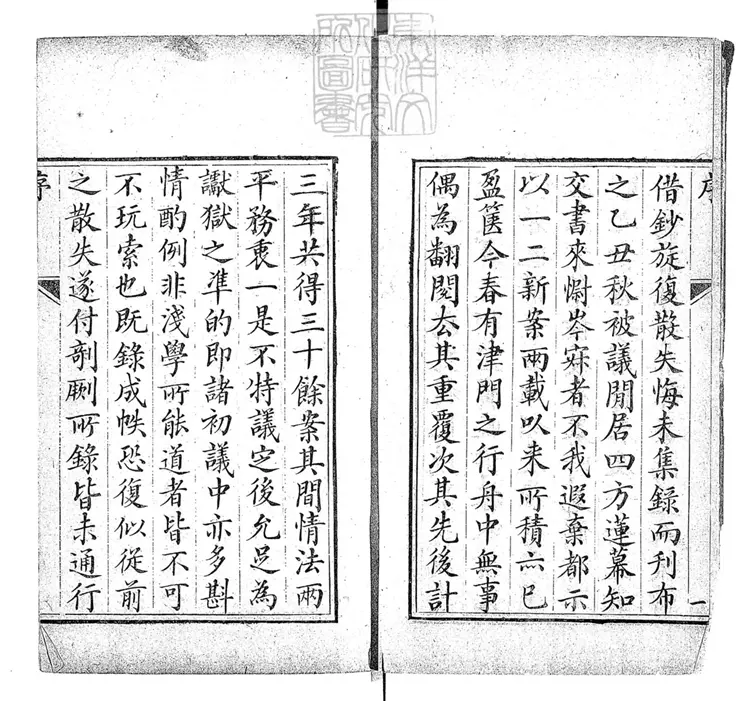 序
一
借鈔旋復散失悔未集錄而刋布
之乙丑秋被議閒居四方蓮幕知
交書來㷉岑寂者不我遐棄都示
以一二新案兩載以来所積亦已
盈篋今春有津門之行舟中無事
偶為翻閱厺其重覆次其先後計
三年共得三十餘案其間情法兩
平務衷一是不特議定後允足為
讞獄之凖的即諸初議中亦多斟
情酌例非淺學所能道者皆不可
不玩索也既錄成帙恐復似從前
之散失遂付剞劂所錄皆未通行
序
東洋文
化研究
所圖書